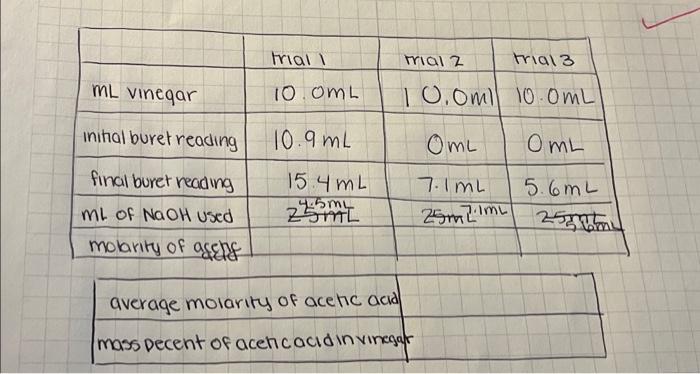 trial 1 trial 2 trial 3
mL vinegar 10.0mL 10.0ml 10.0mL
initial buret reading 10.9mL 0mL 0mL
final buret reading 15.4mL 7.1mL 5.6mL
mL of NaOH used 25mL 4.5mL 25mL 7.1mL 25mL 5.6mL
molarity of
average molarity of acetic acid
mass pecent of acetic acid in vinegar